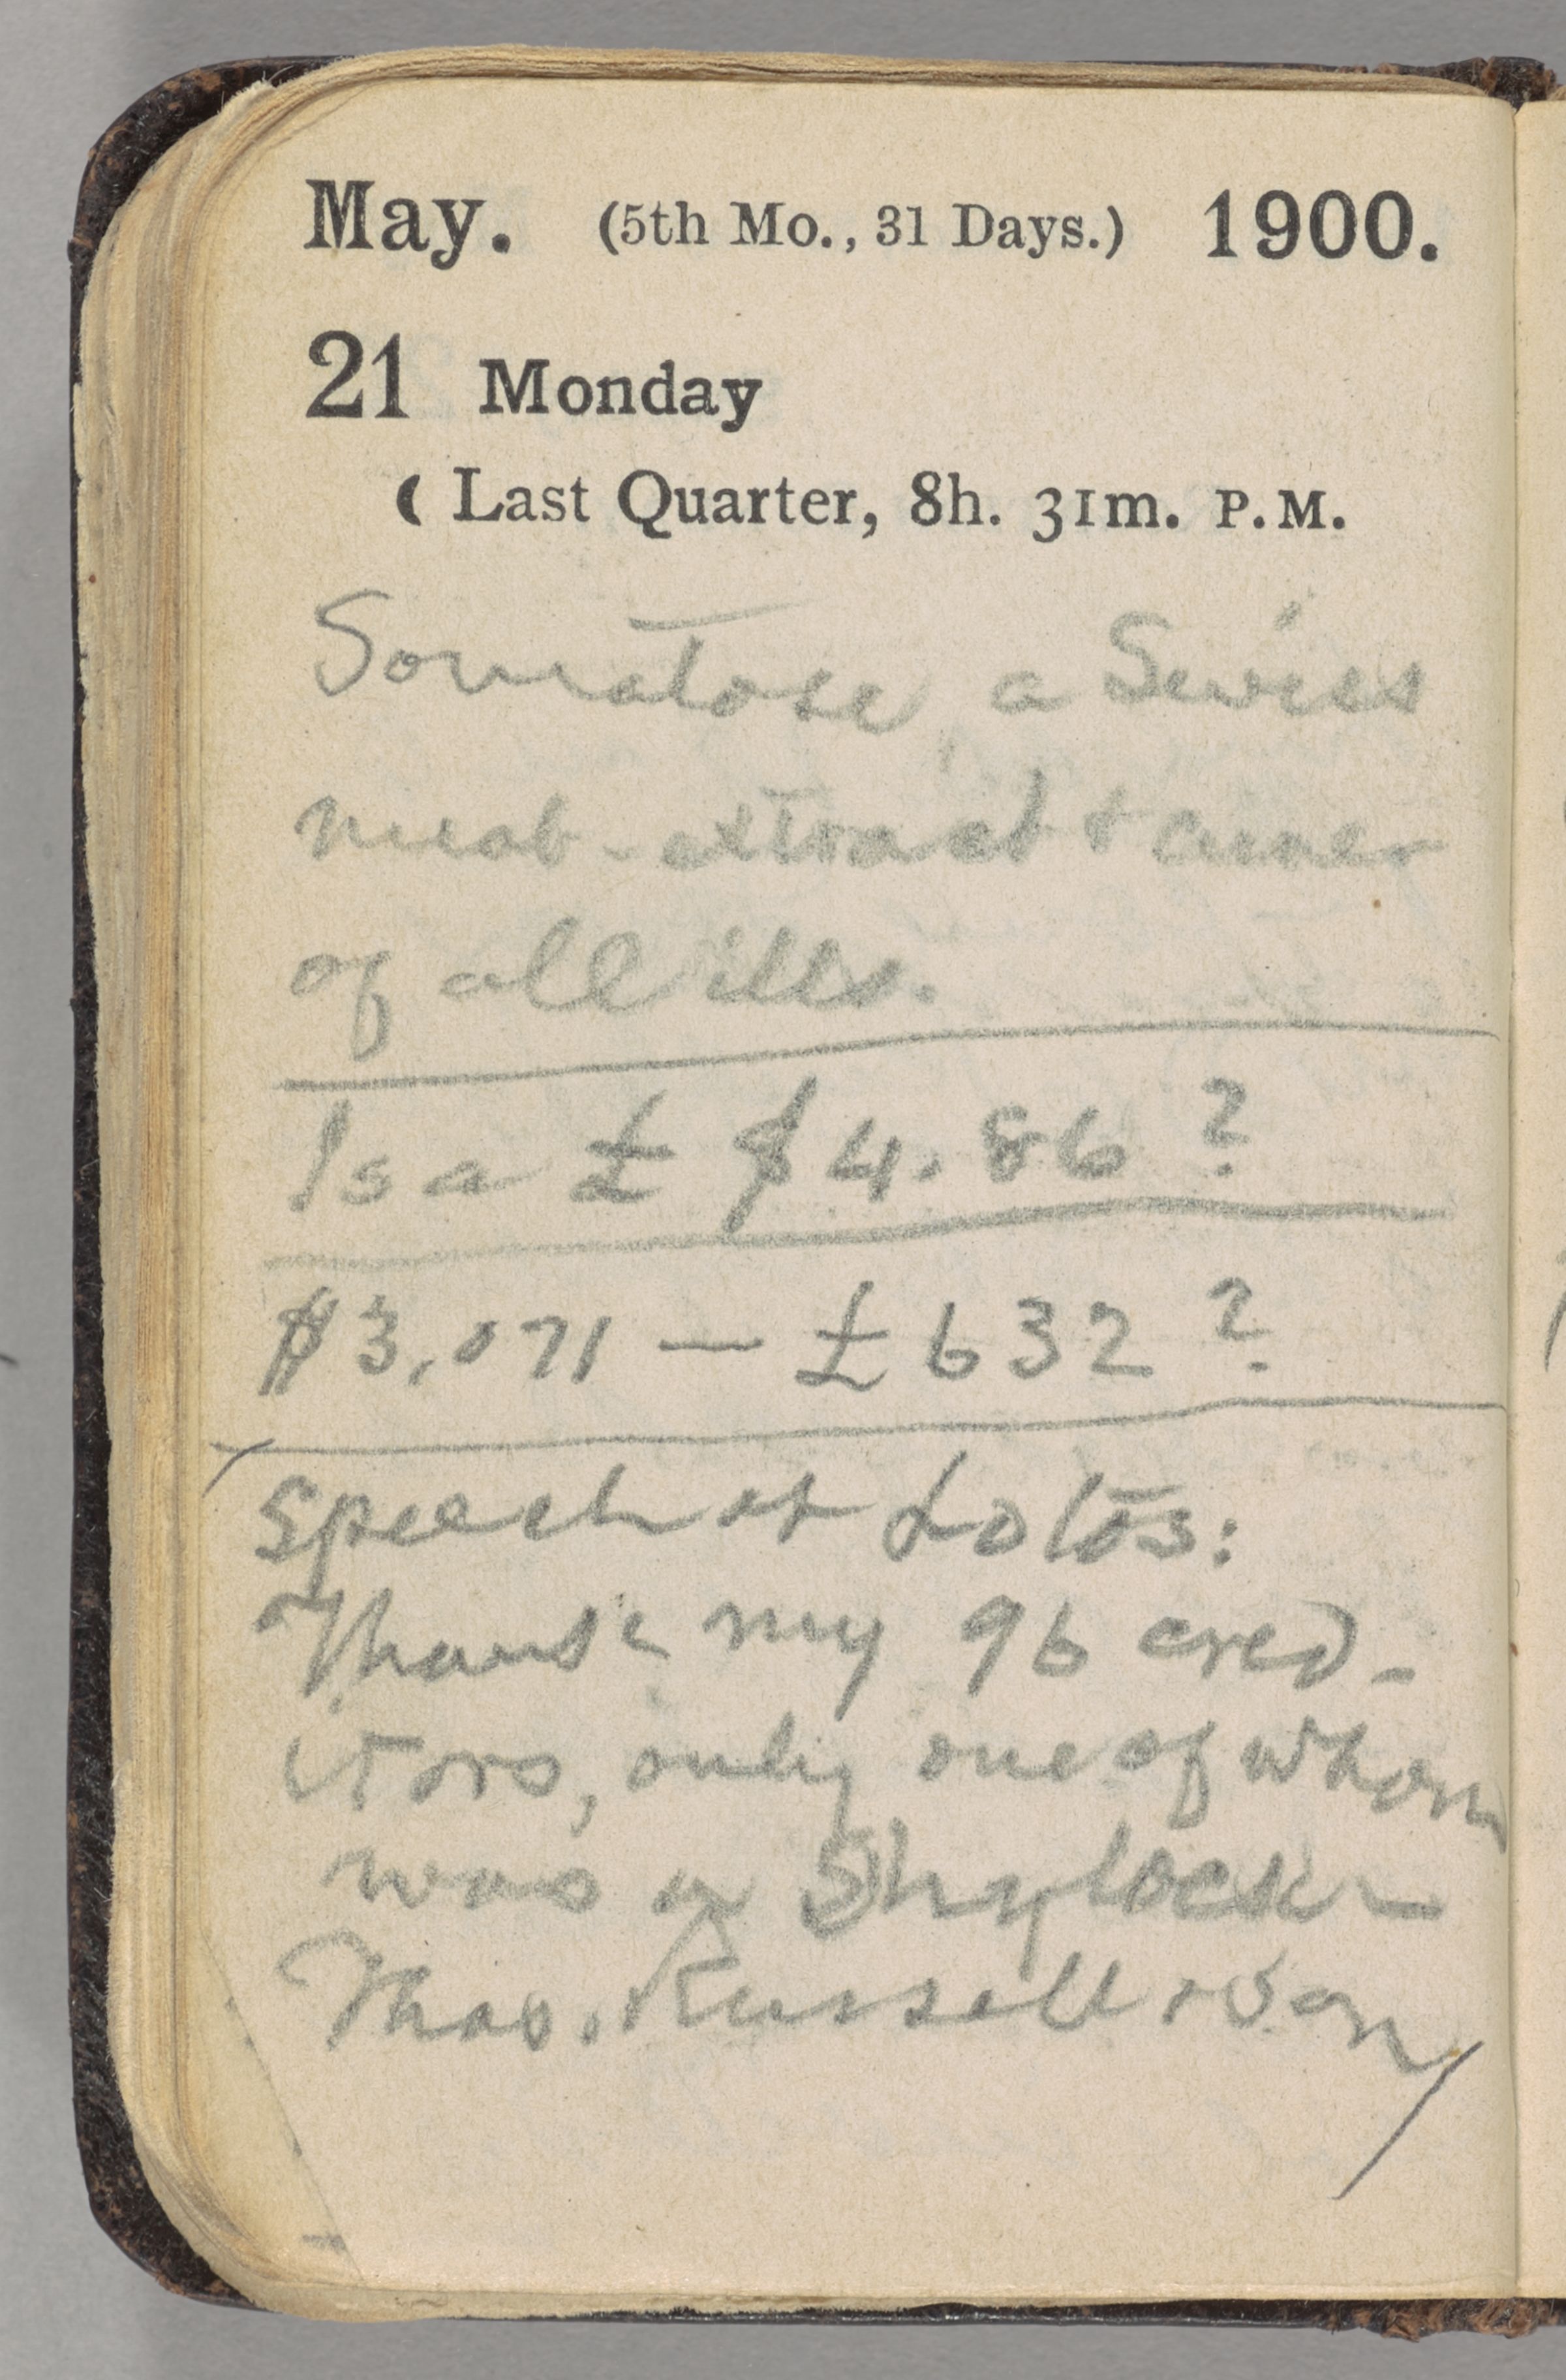 May. (5th Mo., 31 Days.) 1900.
21 Monday
Last Quarter, 8h. 31m. P.M.
Somatose, a Swiss
meat-extract & curer
of all ills.
Is a £ $4.86?
$3,071 — £632?
Speech at Lotos:
Thank my 96 cred-
itors, only one of whom
was a Shylock
Thos. Russell & Son